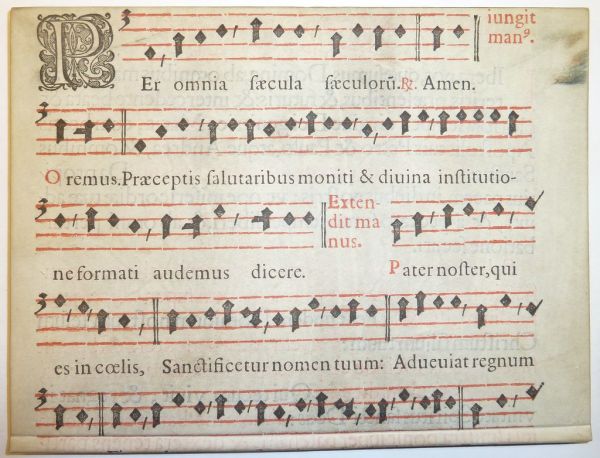 iungit
man⁹.
PEr omnia sæcula sæculorū. ℟. Amen.
Oremus. Præceptis ſalutaribus moniti & diuina inſtitutio-
Exten-
dit ma
nus.
ne formati audemus dicere. Pater noſter, qui
es in cœlis, Sanctificetur nomen tuum: Adueuiat regnum